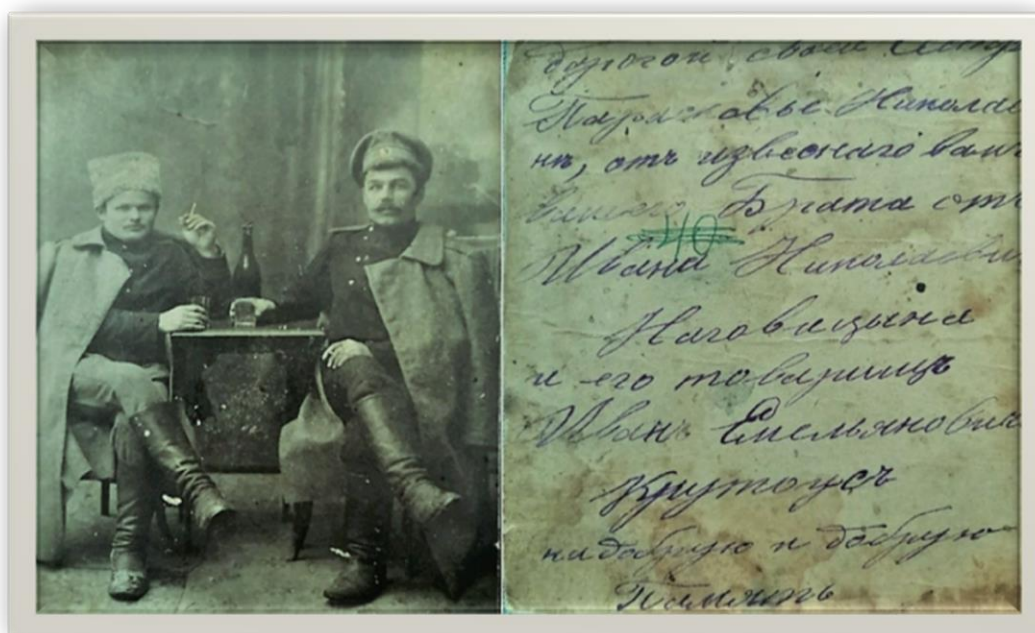 дорогой своей Сестр
Парасковье Николае
нѣ, отъ извеснаго вам
вашего Брата отъ
40
Ивана Николаеви
Наговицына
и его товарищъ
Иванъ Емельянович
Крутоусъ
на добрую и добрую
Память